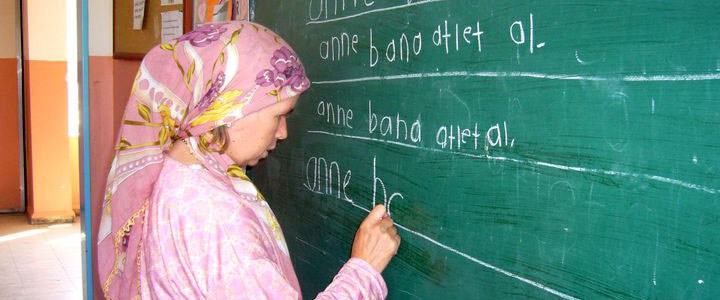 anne
anne bana atlet al.
anne bana atlet al.
anne b